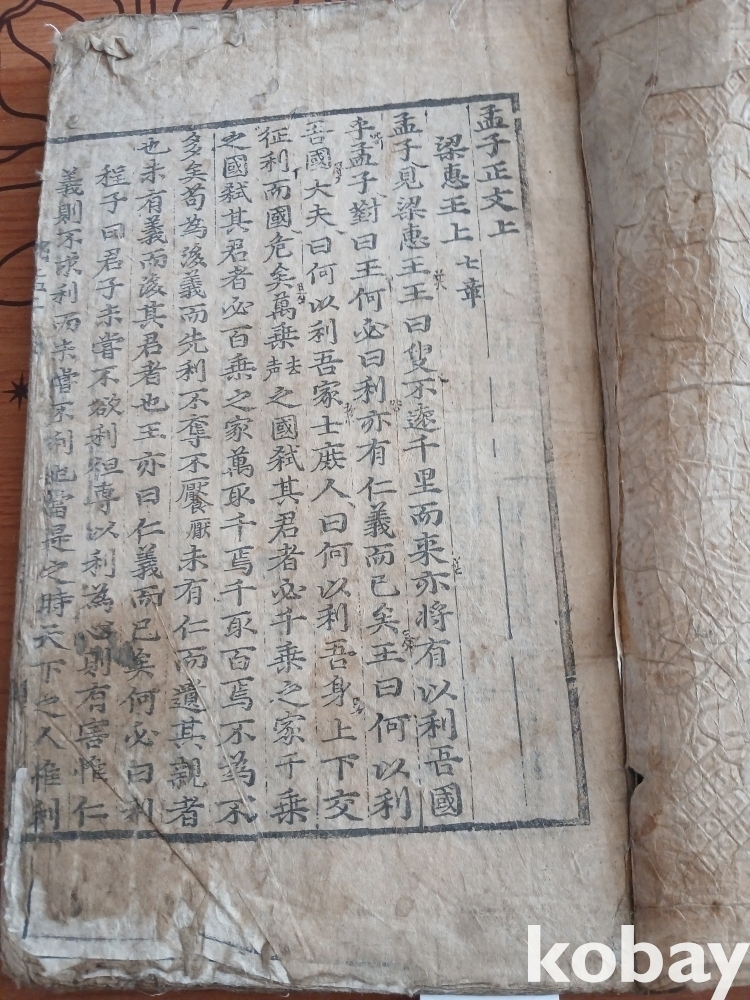 孟子正文上
梁惠王上 七章
孟子見梁惠王王曰叟不遠千里而来亦將有以利吾國
乎孟子對曰王何必曰利亦有仁義而已矣王曰何以利
吾國大夫曰何以利吾家士庶人曰何以利吾身上下交
征利而國危矣萬乗去声之國弑其君者必千乗之家千乗
之國弑其君者必百乗之家萬取千焉千取百焉不為不
多矣苟為後義而先利不奪不饜饜未有仁而遺其親者
也未有義而後其君者也王亦曰仁義而已矣何必曰利
程子曰君子未嘗不欲利但専以利為心則有害惟仁
義則不求利而未嘗不利也當是之時天下之人惟利
kobay